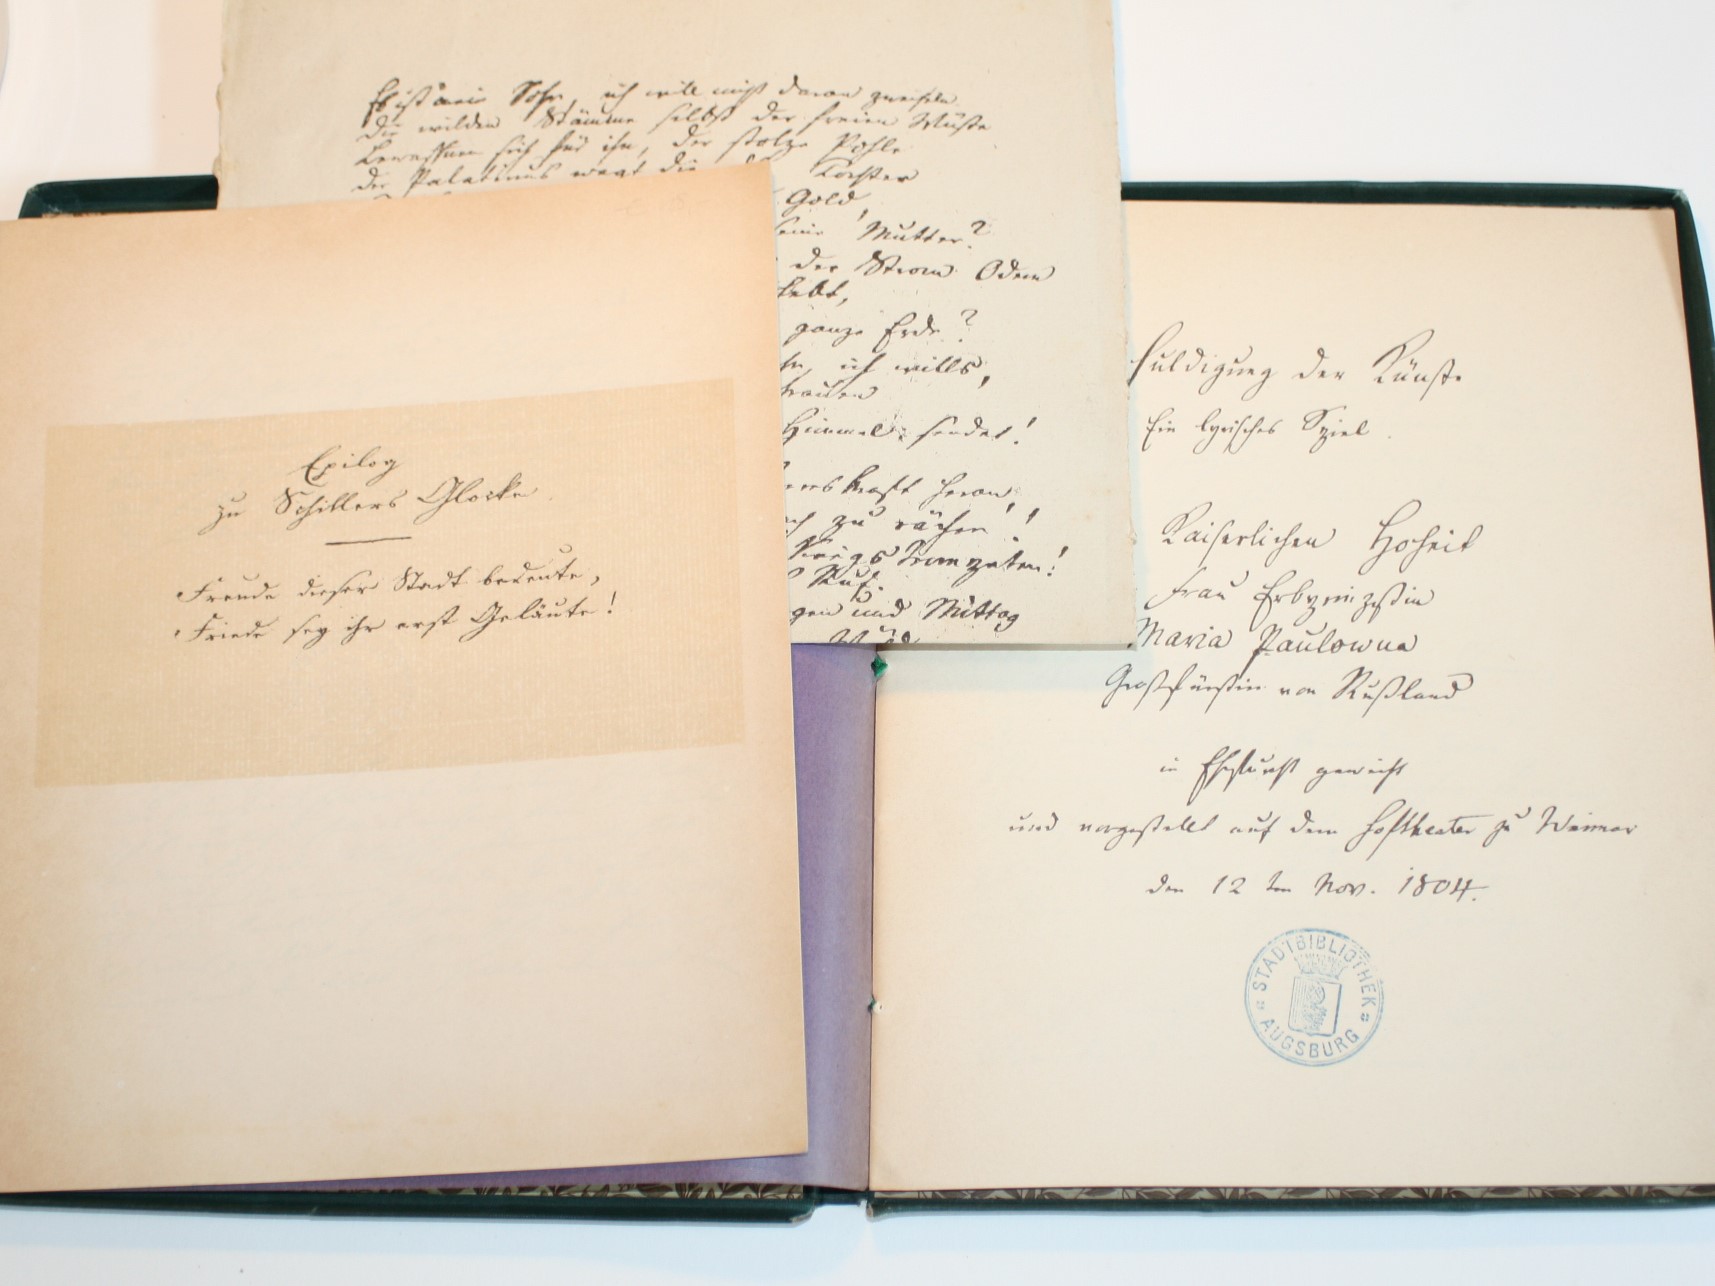 Es ist mein Sohn, ich will nicht daran zweifeln.
Die wilden Stämme selbst der freien Wüste
Bewaffnen sich für ihn, der stolze Pohle
der Palatinus wagt die Tochter
Gold,
seine Mutter?
der Strom Odem
hebt,
ganze Erde?
ich wills,
trauen
Himmel sendet!
heran,
zu rächen!
Kriegstrompeten!
Ruf.
und Mittag
Epilog
zu Schillers Glocke.
Freude dieser Stadt bedeute,
Friede sey ihr erst Geläute!
Huldigung der Künste
Ein lyrisches Spiel.
Kaiserlichen Hoheit
Frau Erbprinzeßin
Maria Paulowna
Großfürstin von Rußland
in Ehrfurcht geweiht
und vorgestellt auf dem Hoftheater zu Weimar
den 12 ten Nov. 1804.
STADTBIBLIOTHEK
AUGSBURG